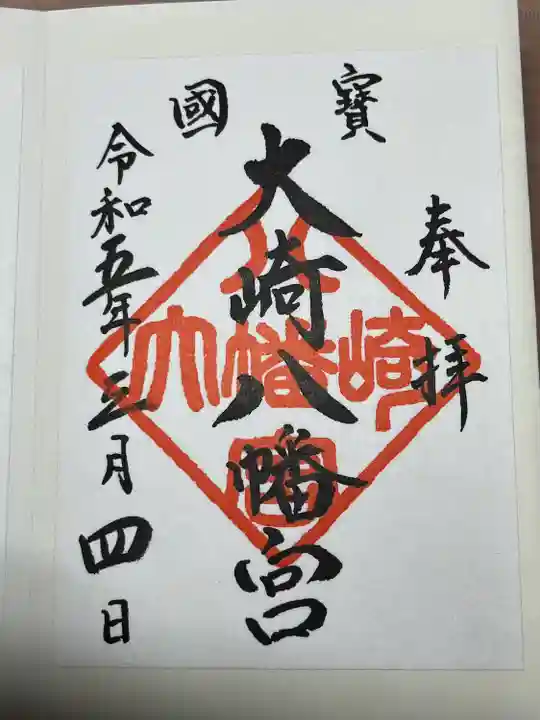 奉拝
寳
大崎八幡宮
國
令和五年三月四日
大崎八幡宮